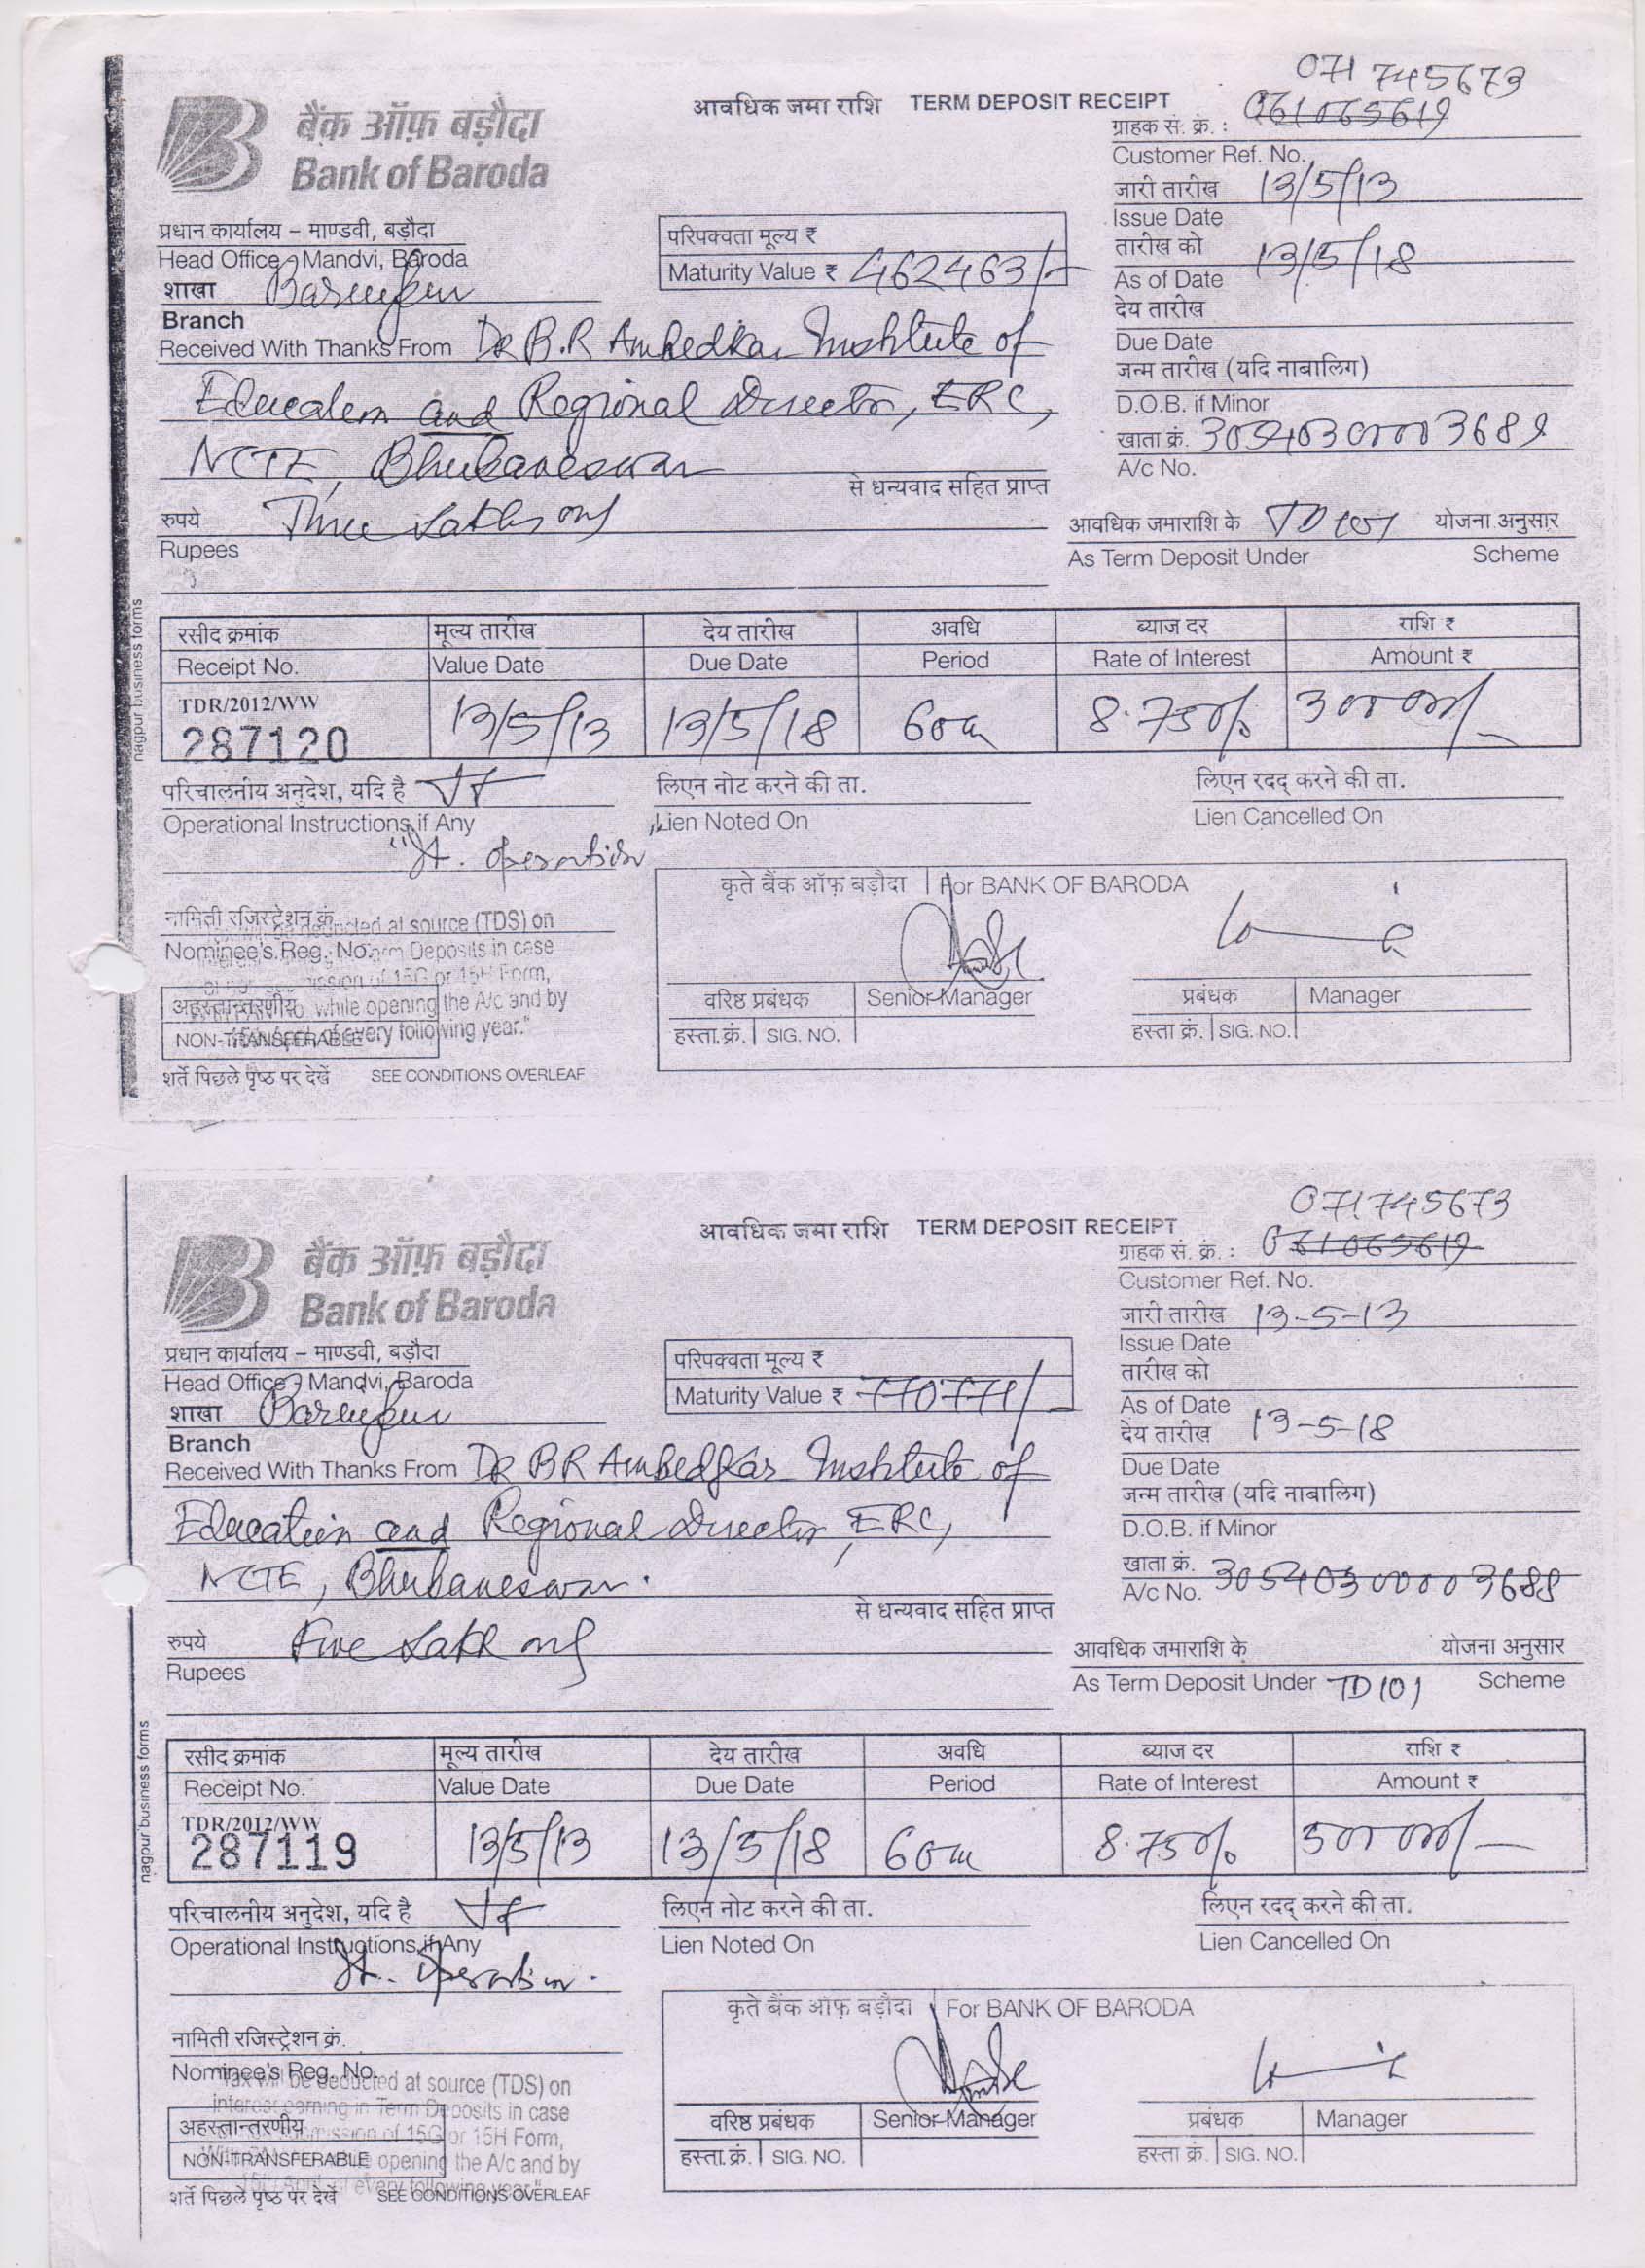 071 745673
आवधिक जमा राशि TERM DEPOSIT RECEIPT
ग्राहक सं. क्रं. : 061065619
Customer Ref. No.
बैंक ऑफ़ बड़ौदा
Bank of Baroda
जारी तारीख 13/5/13
Issue Date
प्रधान कार्यालय – माण्डवी, बड़ौदा
Head Office - Mandvi, Baroda
परिपक्वता मूल्य ₹
Maturity Value ₹ 462463/-
तारीख को
As of Date 13/5/18
शाखा Baruipur
Branch
देय तारीख
Due Date
Received With Thanks From Dr B.R Ambedkar Institute of
Education and Regional Director, ERC,
NCTE, Bhubaneswar
से धन्यवाद सहित प्राप्त
जन्म तारीख (यदि नाबालिग)
D.O.B. if Minor
खाता क्रं.
A/c No.
रुपये Three Lakhs only
Rupees
आवधिक जमाराशि के TD101 योजना अनुसार
As Term Deposit Under Scheme
nagpur business forms
रसीद क्रमांक मूल्य तारीख देय तारीख अवधि ब्याज दर राशि ₹
Receipt No. Value Date Due Date Period Rate of Interest Amount ₹
TDR/2012/WW
287120 13/5/13 13/5/18 60m 8.75% 300000/-
परिचालनीय अनुदेश, यदि है लिएन नोट करने की ता. लिएन रदद् करने की ता.
Operational Instructions,if Any Lien Noted On Lien Cancelled On
Jt. operation
कृते बैंक ऑफ़ बड़ौदा For BANK OF BARODA
नामिती रजिस्ट्रेशन क्रं.
Nominee's Reg. No.
deducted at source (TDS) on
Term Deposits in case
of 15G or 15H Form,
while opening the A/c and by
of every following year."
अहस्तान्तरणीय
NON-TRANSFERABLE
वरिष्ठ प्रबंधक Senior Manager प्रबंधक Manager
हस्ता.क्रं. SIG. NO. हस्ता क्रं. SIG. NO.
शर्ते पिछले पृष्ठ पर देखें SEE CONDITIONS OVERLEAF
071745673
आवधिक जमा राशि TERM DEPOSIT RECEIPT
ग्राहक सं. क्रं. : 061065619
Customer Ref. No.
बैंक ऑफ़ बड़ौदा
Bank of Baroda
जारी तारीख 13-5-13
Issue Date
प्रधान कार्यालय – माण्डवी, बड़ौदा
Head Office - Mandvi, Baroda
परिपक्वता मूल्य ₹
Maturity Value ₹ 770771/-
तारीख को
As of Date
शाखा Baruipur
Branch
देय तारीख 13-5-18
Due Date
Received With Thanks From Dr BR Ambedkar Institute of
Education and Regional Director, ERC,
NCTE, Bhubaneswar.
से धन्यवाद सहित प्राप्त
जन्म तारीख (यदि नाबालिग)
D.O.B. if Minor
खाता क्रं.
A/c No. 30540300003688
रुपये Five Lakh only
Rupees
आवधिक जमाराशि के योजना अनुसार
As Term Deposit Under TD101 Scheme
nagpur business forms
रसीद क्रमांक मूल्य तारीख देय तारीख अवधि ब्याज दर राशि ₹
Receipt No. Value Date Due Date Period Rate of Interest Amount ₹
TDR/2012/WW
287119 13/5/13 13/5/18 60m 8.75% 500000/-
परिचालनीय अनुदेश, यदि है लिएन नोट करने की ता. लिएन रदद् करने की ता.
Operational Instructions,if Any Lien Noted On Lien Cancelled On
Jt. operation.
कृते बैंक ऑफ़ बड़ौदा For BANK OF BARODA
नामिती रजिस्ट्रेशन क्रं.
Nominee's Reg. No.
Tax will be deducted at source (TDS) on
interest earning in Term Deposits in case
of 15G or 15H Form,
opening the A/c and by
of every following year."
अहस्तान्तरणीय
NON-TRANSFERABLE
वरिष्ठ प्रबंधक Senior Manager प्रबंधक Manager
हस्ता.क्रं. SIG. NO. हस्ता क्रं. SIG. NO.
शर्ते पिछले पृष्ठ पर देखें SEE CONDITIONS OVERLEAF